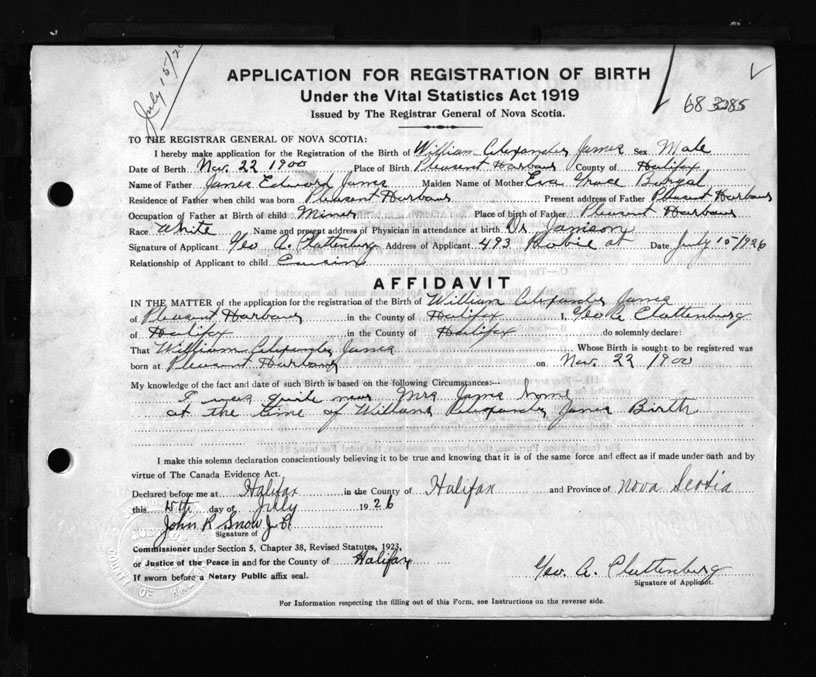 July 15/26
APPLICATION FOR REGISTRATION OF BIRTH
Under the Vital Statistics Act 1919
Issued by The Registrar General of Nova Scotia.
68 3085
TO THE REGISTRAR GENERAL OF NOVA SCOTIA:
I hereby make application for the Registration of the Birth of William Alexander James Sex Male
Date of Birth Nov. 22 1900 Place of Birth Pleasant Harbour County of Halifax
Name of Father James Edward James Maiden Name of Mother Eva Grace
Residence of Father when child was born Pleasant Harbour Present address of Father Pleasant Harbour
Occupation of Father at Birth of child Miner Place of birth of Father Pleasant Harbour
Race White Name and present address of Physician in attendance at birth. Dr Jamison
Signature of Applicant Geo A. Clattenburg Address of Applicant 493 Robie St Date July 15/1926
Relationship of Applicant to child Cousin
AFFIDAVIT
IN THE MATTER of the application for the registration of the Birth of William Alexander James
of Pleasant Harbour in the County of Halifax I, Geo A Clattenburg
of Halifax in the County of Halifax do solemnly declare:
That William Alexander James Whose Birth is sought to be registered was
born at Pleasant Harbour on Nov. 22 1900
My knowledge of the fact and date of such Birth is based on the following Circumstances:—
I was quite near Mrs James home
at the time of William Alexander James Birth
I make this solemn declaration conscientiously believing it to be true and knowing that it is of the same force and effect as if made under oath and by
virtue of The Canada Evidence Act.
Declared before me at Halifax in the County of Halifax and Province of Nova Scotia
this 15th day of July 1926
John R Snow J.P.
Signature of
Commissioner under Section 5, Chapter 38, Revised Statutes, 1923,
or Justice of the Peace in and for the County of Halifax
If sworn before a Notary Public affix seal.
Geo. A. Clattenburg
Signature of Applicant.
For Information respecting the filling out of this Form, see Instructions on the reverse side.